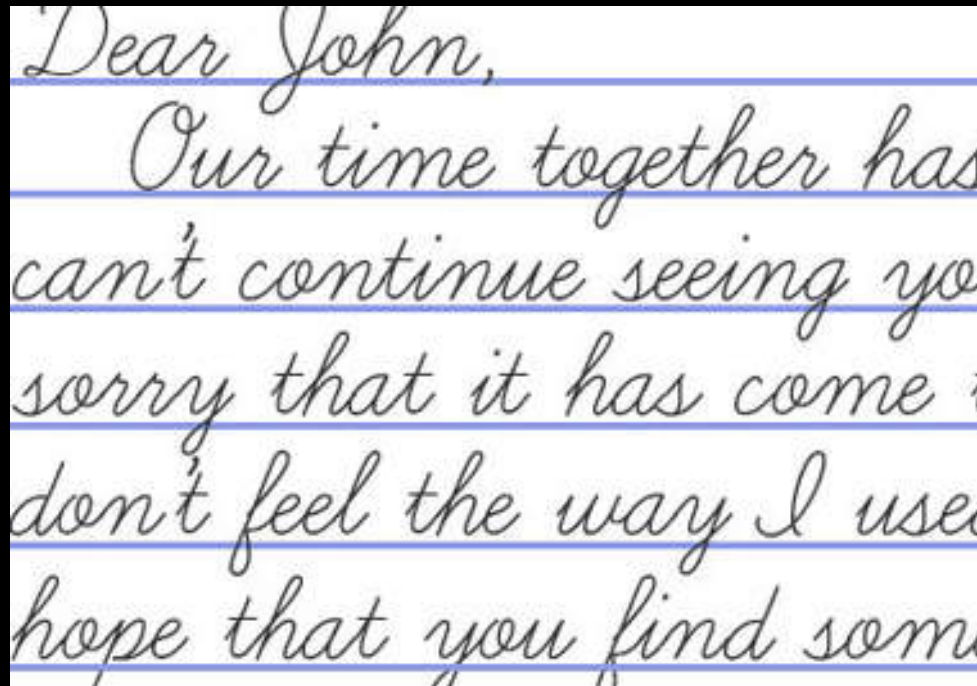 Dear John,
Our time together has
can't continue seeing yo
sorry that it has come t
don't feel the way I use
hope that you find som